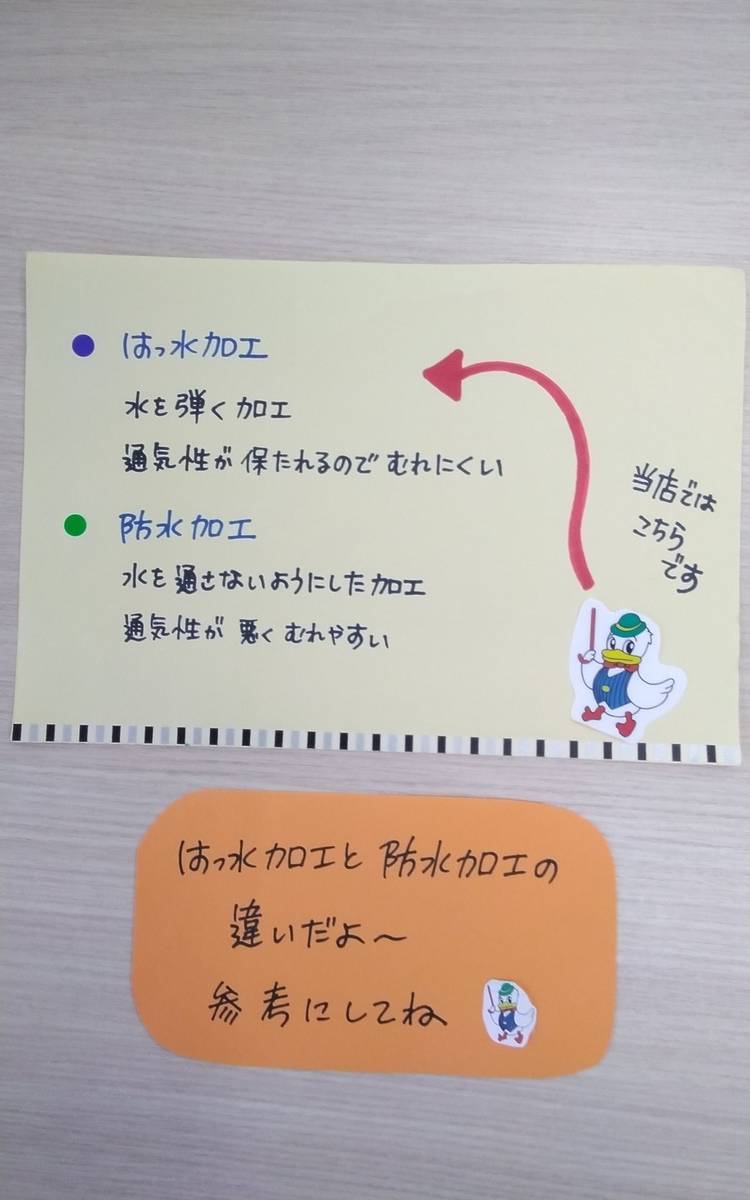 はっ水加工
水を弾く加工
通気性が保たれるのでむれにくい
防水加工
水を通さないようにした加工
通気性が悪くむれやすい
当店では
こちら
です
はっ水加工と防水加工の
違いだよ～
参考にしてね